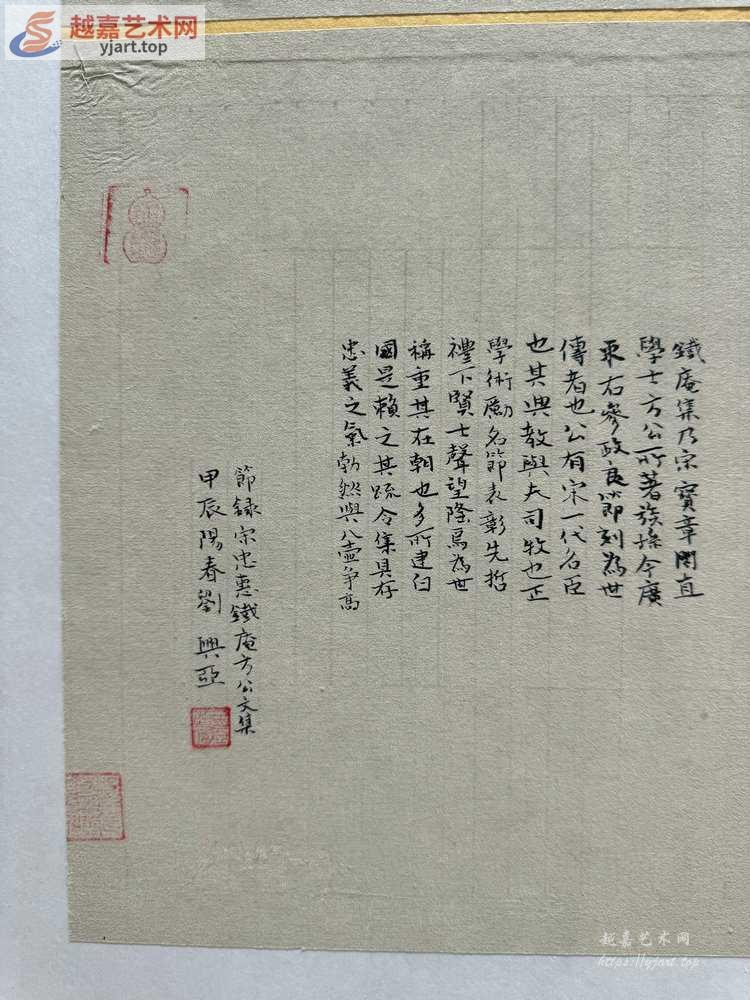 越嘉艺术网
yjart.top
鐵庵集乃宋寶章閣直
學士方公所著族孫今廣
東右參政良節刻為世
傳者也公有宋一代名臣
也其典教與夫司牧也正
學術勵名節表彰先哲
禮下賢士聲望隆焉為世
稱重其在朝也多所建白
國是賴之其疏令集具存
忠義之氣勃然與八壺爭高
節録宋忠惠鐵庵方公文集
甲辰陽春劉興亞
越嘉艺术网
https://yjart.top